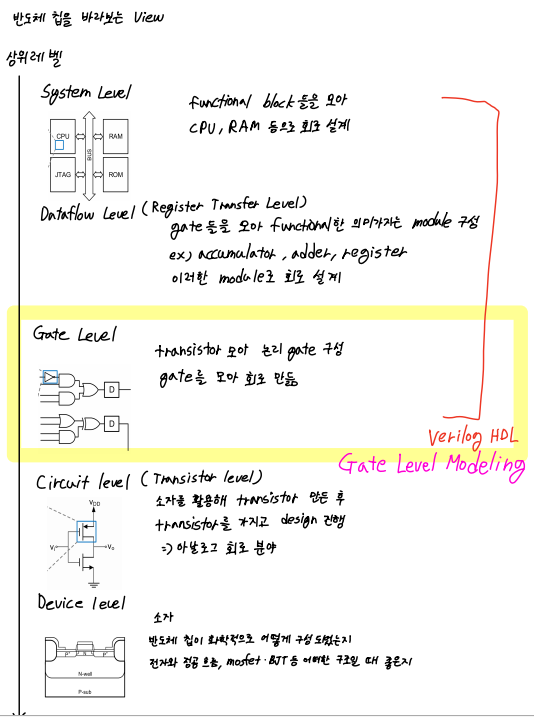 반도체 칩을 바라보는 View
상위레벨
System Level
functional block들을 모아
CPU, RAM 등으로 회로 설계
CPU
RAM
BUS
JTAG
ROM
Dataflow Level (Register Transfer Level)
gate들을 모아 functional한 의미가지는 module 구성
ex) accumulator, adder, register
이러한 module로 회로 설계
Gate Level
transistor 모아 논리 gate 구성
gate를 모아 회로 만듦
D
D
Verilog HDL
Gate Level Modeling
Circuit level (Transistor level)
소자를 활용해 transistor 만든 후
transistor를 가지고 design 진행
=> 아날로그 회로 분야
VDD
Vi
Vo
Device level
소자
반도체 칩이 화학적으로 어떻게 구성 되었는지
전자와 정공 흐름, mosfet·BJT 등 어떠한 구조일 때 좋은지
P+
N
P+
N-well
P-sub